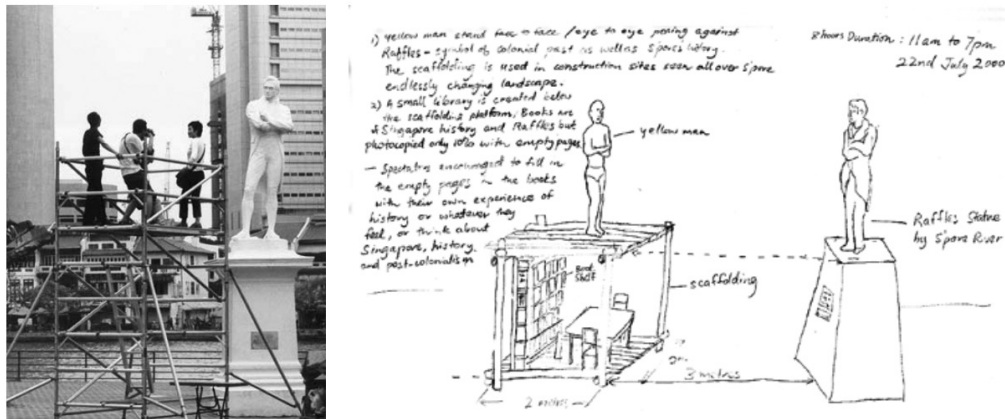 1) Yellow man stand face to face /eye to eye posing against
Raffles - symbol of colonial past as well as S'pore history.
The scaffolding is used in construction sites seen all over S'pore
endlessly changing landscape.
2) A small library is created below
the scaffolding platform. Books are
of Singapore history and Raffles but
photocopied only 10% with empty pages
- Spectators encouraged to fill in
the empty pages in the books
with their own experience of
history or whatever they
feel, or think about
Singapore, history
and post-colonialism
8 hours Duration : 11am to 7pm
22nd July 2000
yellow man
Book
Shelf
scaffolding
Raffles Statue
by S'pore River
2m
3 metres
2 metres